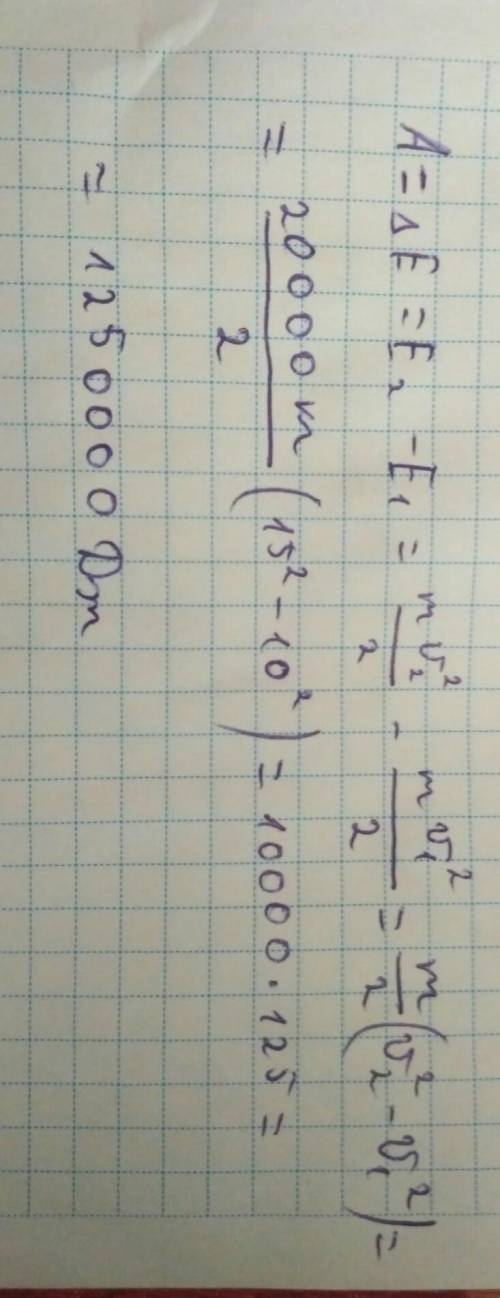 A = ΔE = E₂ - E₁ = mv₂²/2 - mv₁²/2 = m/2 (v₂² - v₁²) =
= 20000 кг/2 (15² - 10²) = 10000 · 125 =
= 1250000 Дж